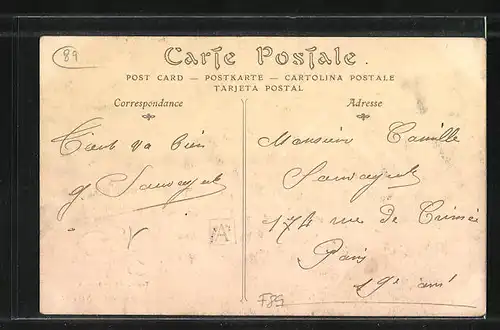 89
Carte Postale.
POST CARD — POSTKARTE — CARTOLINA POSTALE
TARJETA POSTAL
Correspondance
Tout va bien
Adresse
Monsieur Camille
174 rue de Crimée
Paris
19e
F89